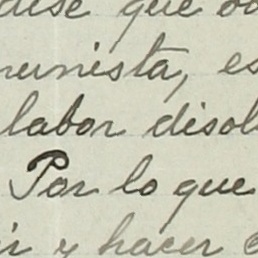 dise que
munista, es
labor disol
Por lo que
ir y hacer